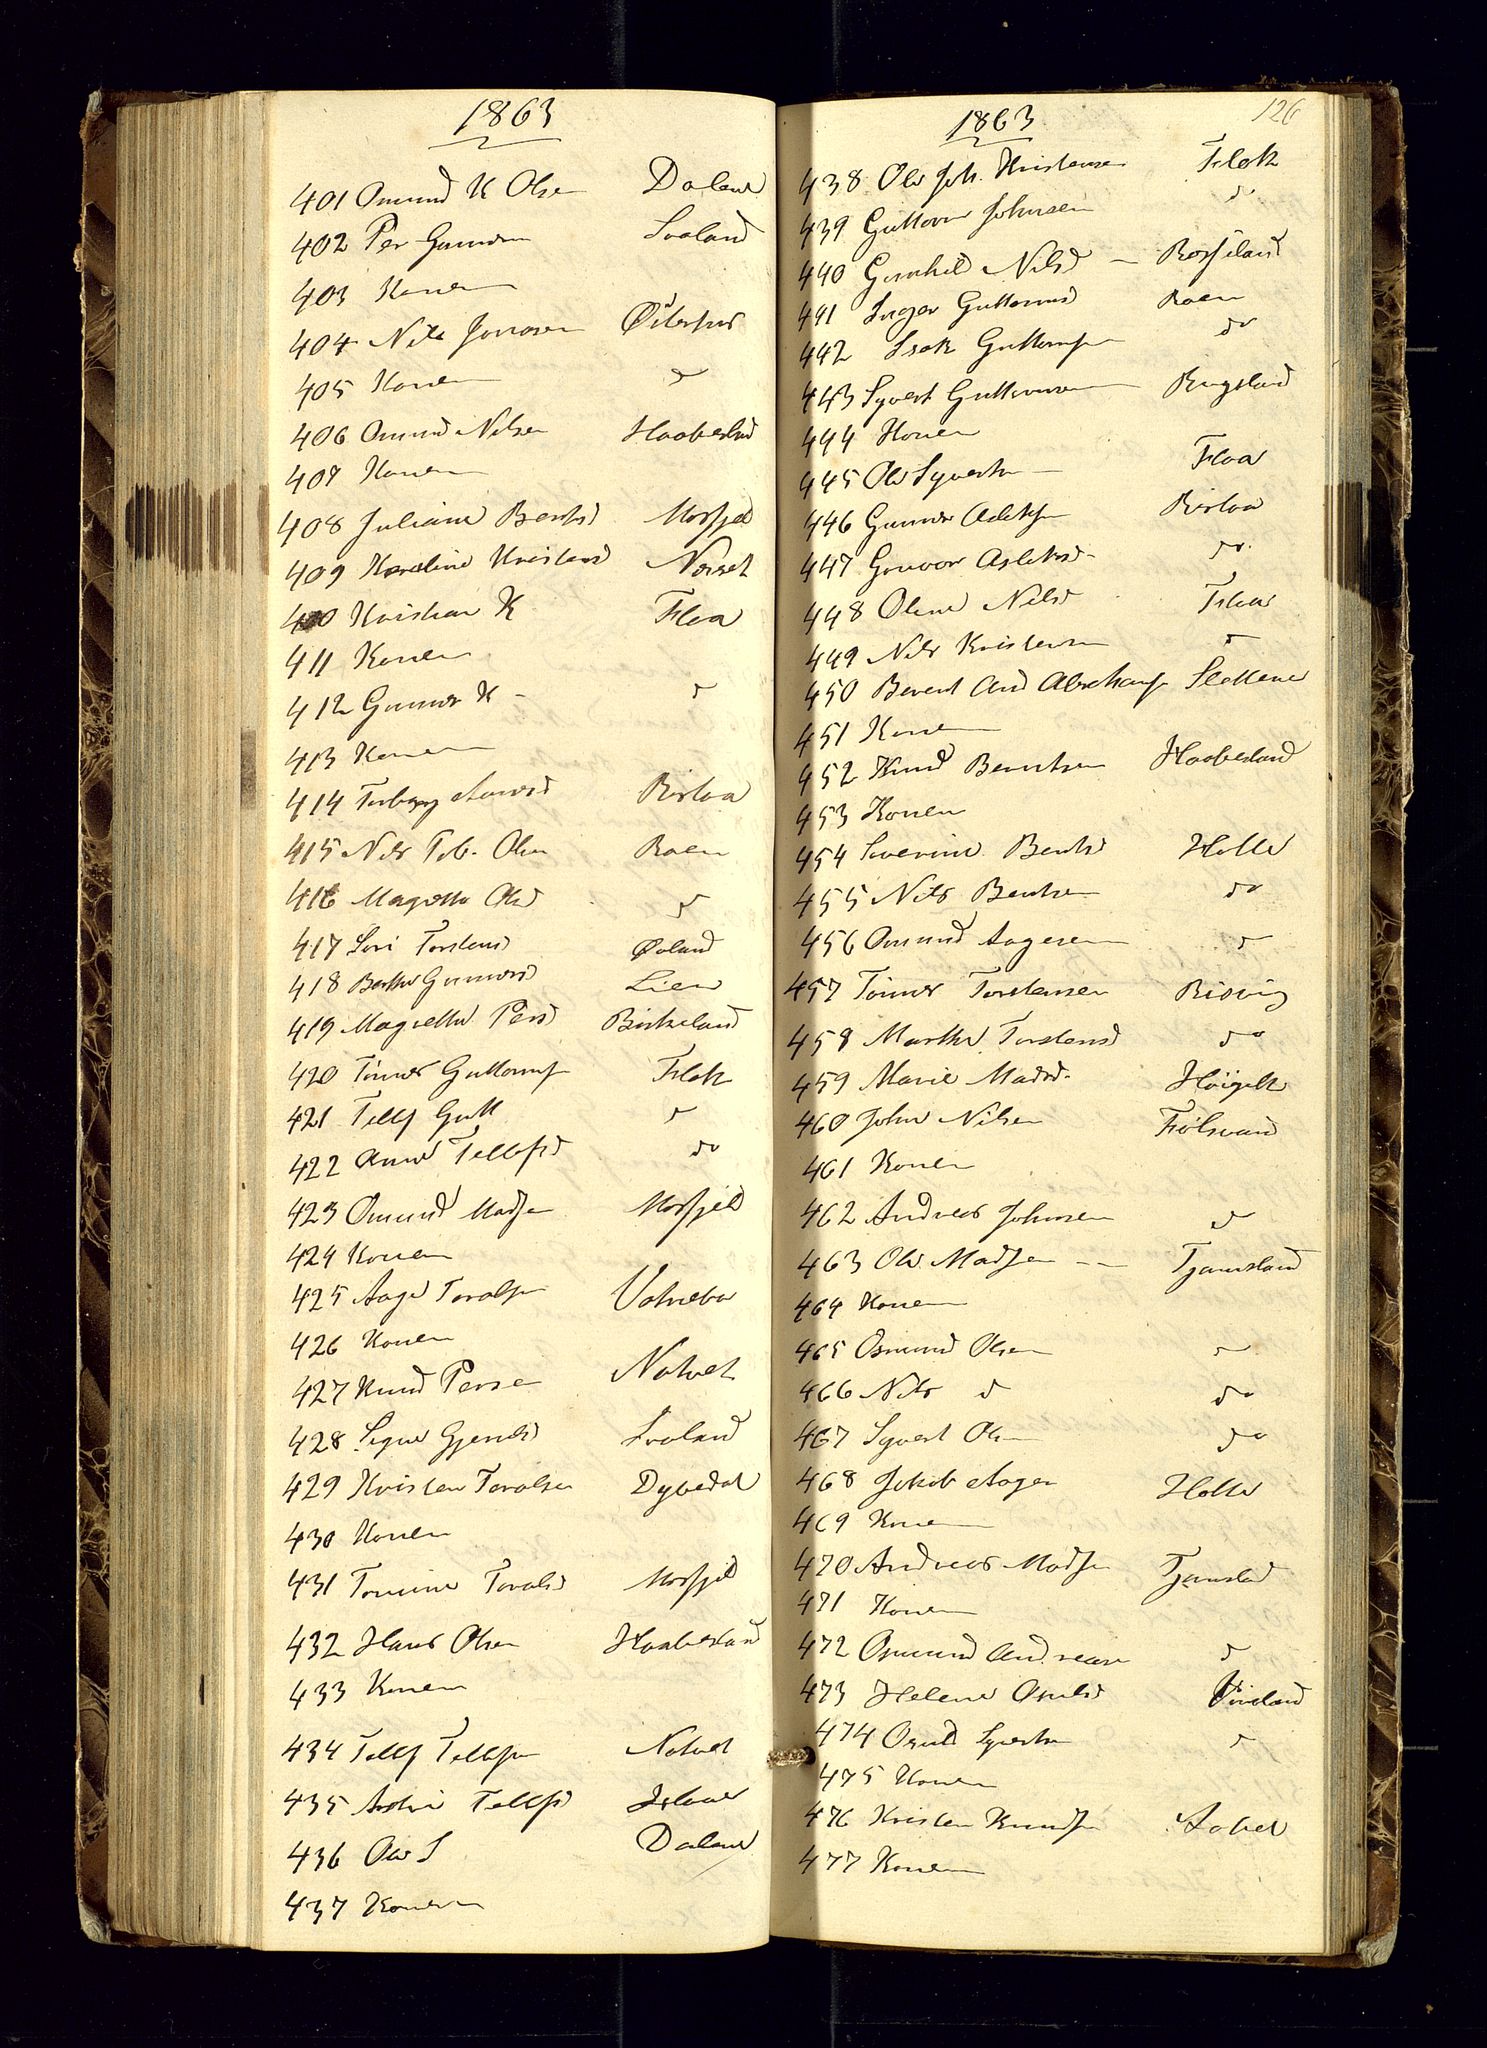 1863
401 Omund K Olsen Daland
402 Per Gunders Svaland
403 Konen
404 Nils Jonasen Østerhus
405 Konen d
406 Omund Nilsen Haabesland
407 Konen
408 Juliane Bentsd Mosfjeld
409 Karoline Kristensd Nærset
410 Kristian K Floa
411 Konen
412 Gunner K - d
413 Konen
414 Torborg Aanensd Risløa
415 Nils Tob. Olsen Roen
416 Magretha Olsd d
417 Siri Torstensd Øvland
418 Berthe Gunnersd Lien
419 Magrethe Persd Birkeland
420 Tönnes Guttormsen Flak
421 Tellef Gutt d
422 Anne Tellefsd do
423 Omund Madsen Mosfjeld
424 Konen
425 Aage Toralsen Vatnebo
426 Konen
427 Knud Persen Natvet
428 Signe Gjeruldsd Svaland
429 Kristen Toralsen Dybedal
430 Konen
431 Tomine Toralsd Mosfjeld
432 Hans Olsen Haabesland
433 Konen
434 Tellef Tellefsen Natvet
435 Tellefsd
436 Ole S Daland
437 Konen
1863 126
438 Ole Joh. Kristensen Flak
439 Guttorm Johnsen d
440 Gunhild Nilsd — Rosseland
441 Inger Guttormsd Roen
442 Isak Guttormsen do
443 Syvert Guttormsen Ringsland
444 Konen
445 Ole Syvertsen Floa
446 Gunner Aslaksen Risløa
447 Gunvor Aslaksd do.
448 Oline Nilsd Floa
449 Nils Kristensen d
450 Berent And Abrahamsen Slettene
451 Konen
452 Knud Berntsen Haabesland
453 Konen
454 Severine Bentsd Holte
455 Nils Bentsen do
456 Omund Aagesen d
457 Tönnes Torstensen Risvig
458 Marthe Torstensd do
459 Marie Madsd. Höigilt
460 John Nilsen Fjølsvand
461 Konen
462 Andreas Johnsen d
463 Ole Madsen -- Tjomsland
464 Konen
465 Osmund Olsen d
466 Nils d do
467 Syvert Olsen do
468 Jakob Aagesen Holte
469 Konen
470 Andreas Madsen Tjomsland
471 Konen
472 Osmund Andreasen d
473 Helene Osuldsd
474 Osuld Syvertsen d
475 Konen
476 Kristen Knudsen
477 Konen